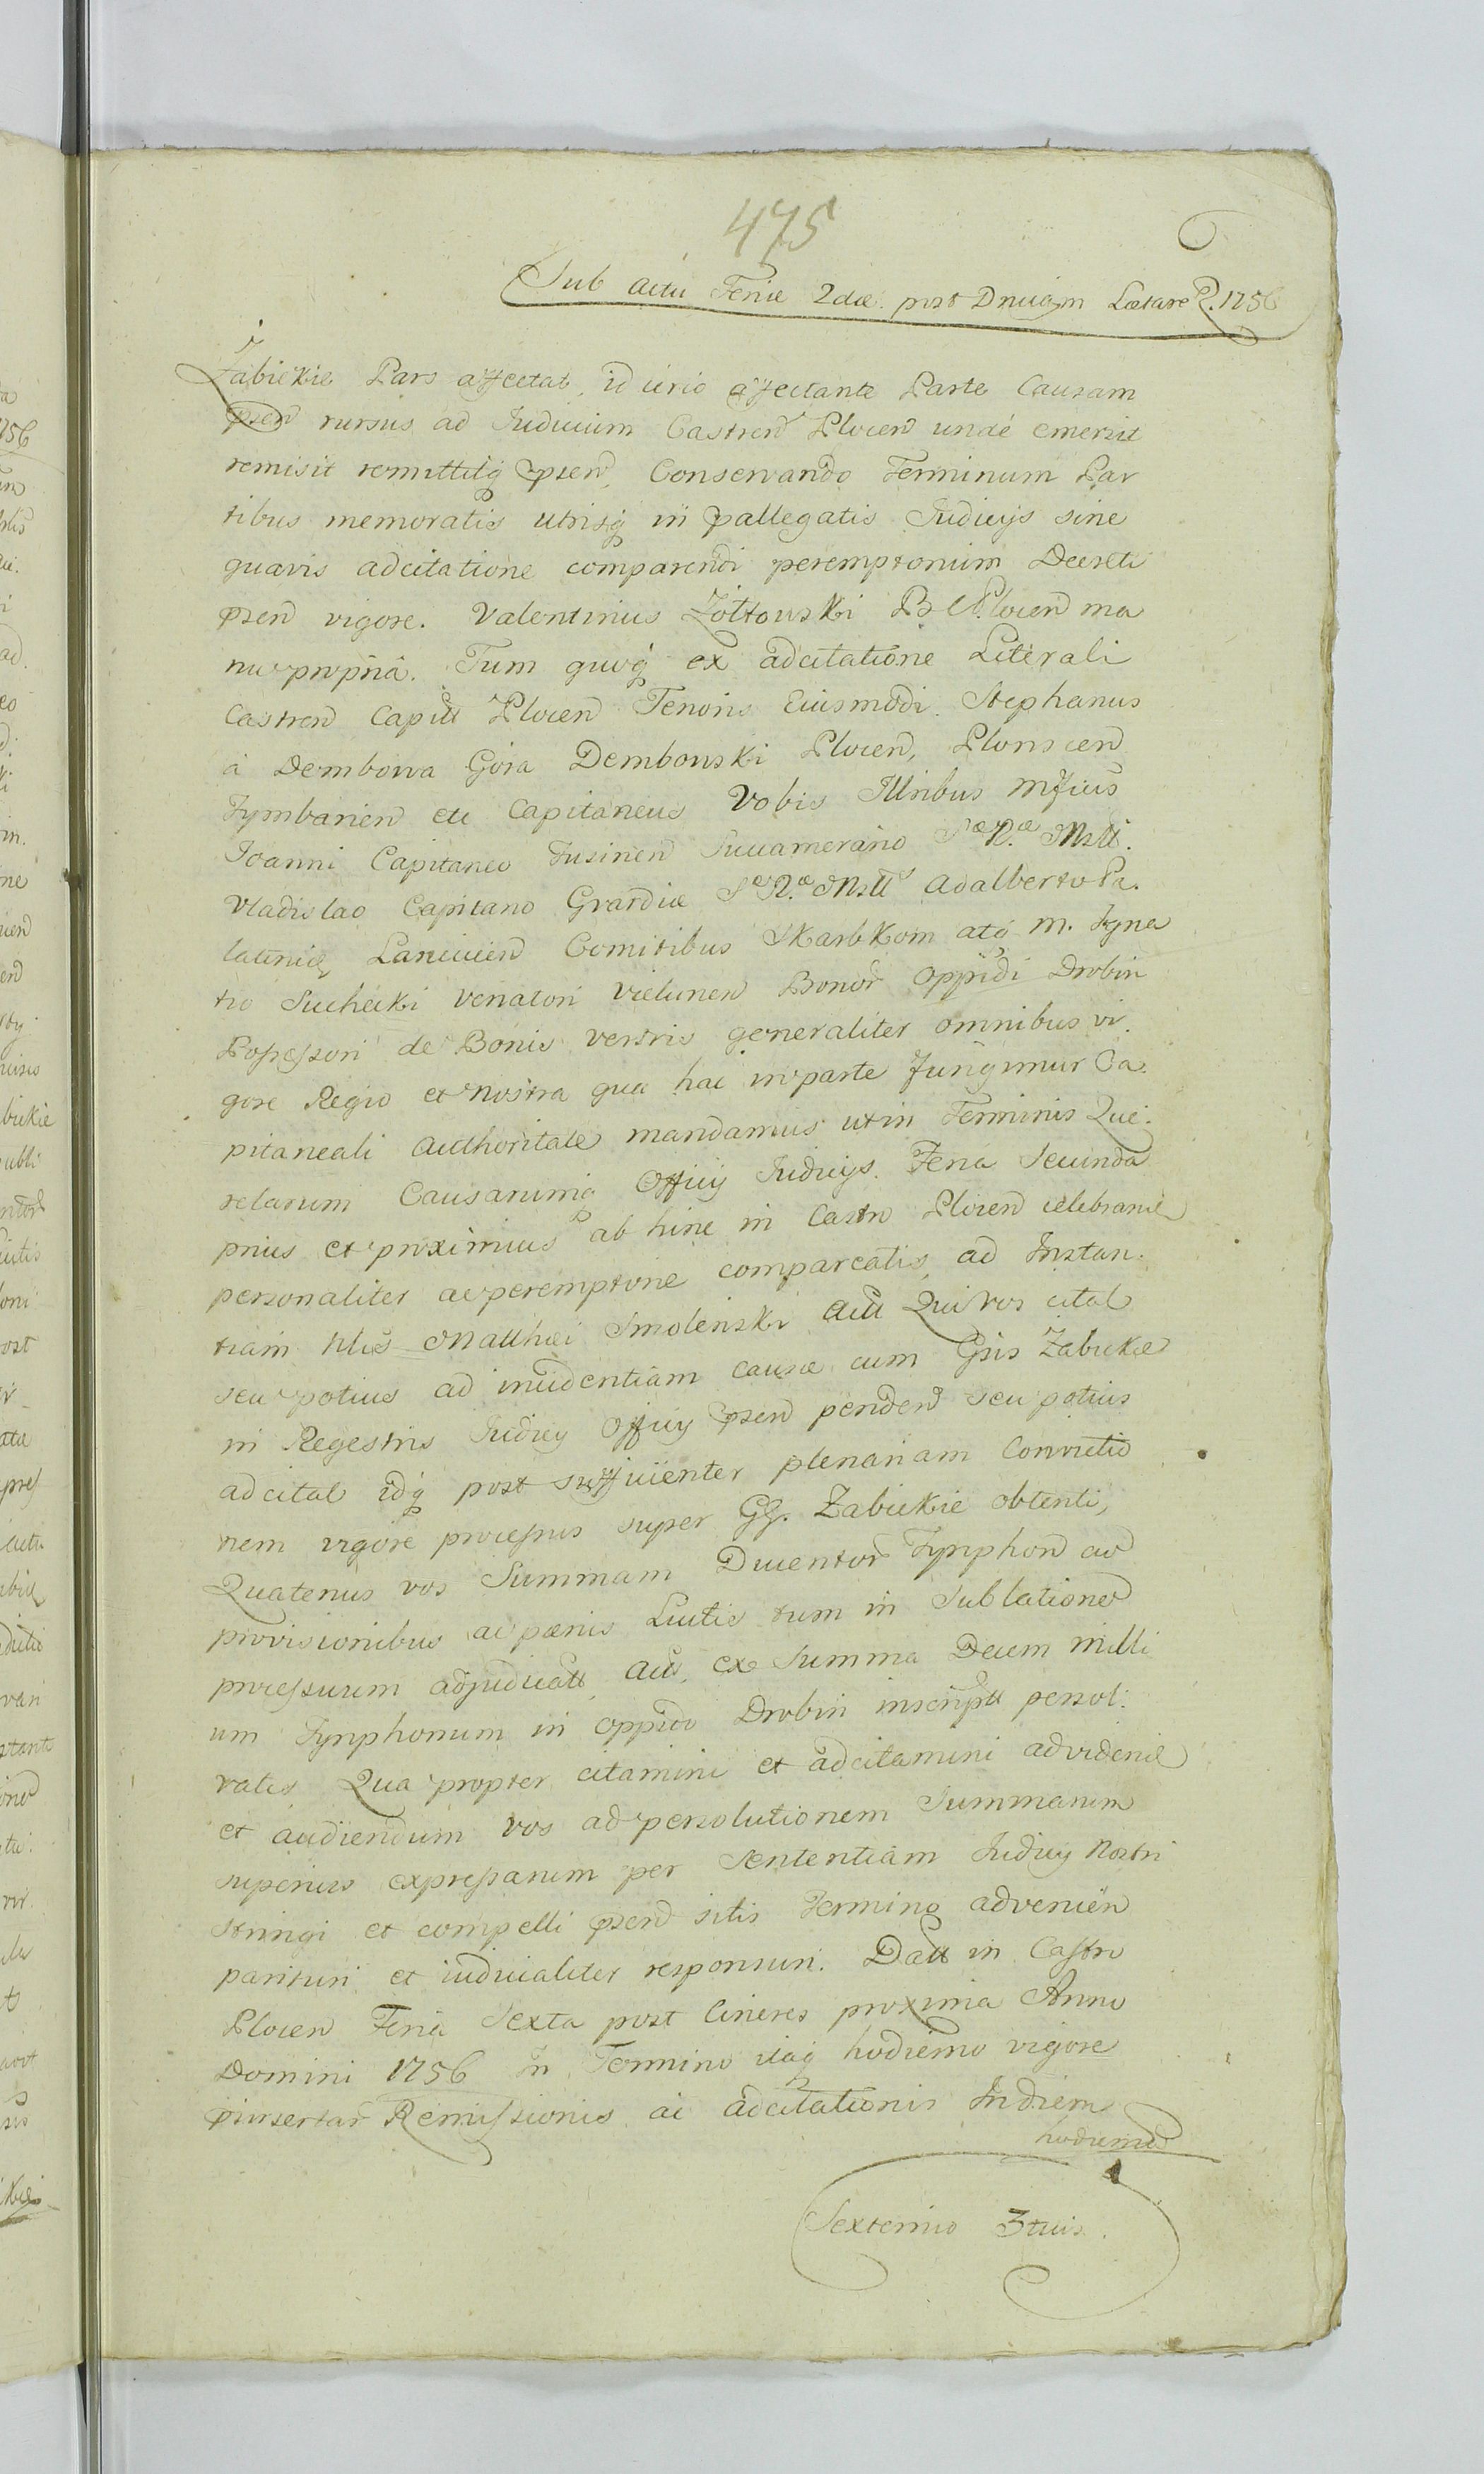 475
Sub actu Feriæ 2dæ post Dnicam Lætare A. 1756
Zabickie Pars affectat, id circo affectante Parte Causam
psen rursus ad Iudicium Castren Plocen unde emersit
remisit remittitq psen, Conservando Terminum Par
tibus memoratis utrisq in pallegatis Iudicijs sine
quavis adcitatione comparendi peremptorium Decreti
psen vigore. Valentinus Zołtowski B Plocen ma
nu propria. Tum quoq ex adcitatione Literali
Castren Capitt Plocen Tenoris Eiusmodi. Stephanus
á Dembowa Góra Dembowski Plocen, Plonscen
Tymbarien etc Capitaneus Vobis Illribus Mficis
Ioanni Capitaneo Tusinen Succamerario Sæ Ræ Mstt.
Vladislao Capitano Gvardiæ Sæ Ræ Mstt Adalberto Pa.
latinidæ Lancicien Comitibus Skarbkom atq M. Igna
tio Suchecki Venatori Vielunen Bonor Oppidi Drobin
Possessori de Bonis vestris generaliter omnibus vi.
gore Regio et Nostra qua hac in parte fungimur Ca.
pitaneali Authoritate mandamus ut in Terminis Que.
relarum Causarumq Officij Iudicijs. Feria Secunda
prius et proximius ab hinc in Castro Plocen celebrand
personaliter ac peremptorie compareatis, ad Instan.
tiam Nlis Matthæi Smolenski Act Qui vos citat
seu potius ad incidentiam causæ cum Gsis Zabickie
in Regestris Iudicij Officij psen penden seu potius
adcitat idq post sufficienter plenariam Convictio
nem vigore processus super GG. Zabickie obtenti,
Quatenus vos Summam Ducentor Tymphon cum
provisionibus ac pænis Luitis tum in Sublatione
processuum adjudicatt, Act, ex Summa Decem Milli
um Tymphonum in Oppido Drobin inscriptt persol.
vatis Qua propter citamini et adcitamini ad vidend
et audiendum vos ad persolutionem Summarum
superius expressarum per Sententiam Iudicij Nostri
stringi et compelli psen sitis Termino advenien
parituri et iudicialiter responsuri. Datt in Castro
Plocen Feria Sexta post Cineres proxima Anno
Domini 1756 In Termino itaq hodierno vigore
pinsertar Remissionis ac adcitationis In diem
hodiernu
Sexternio 3tius.